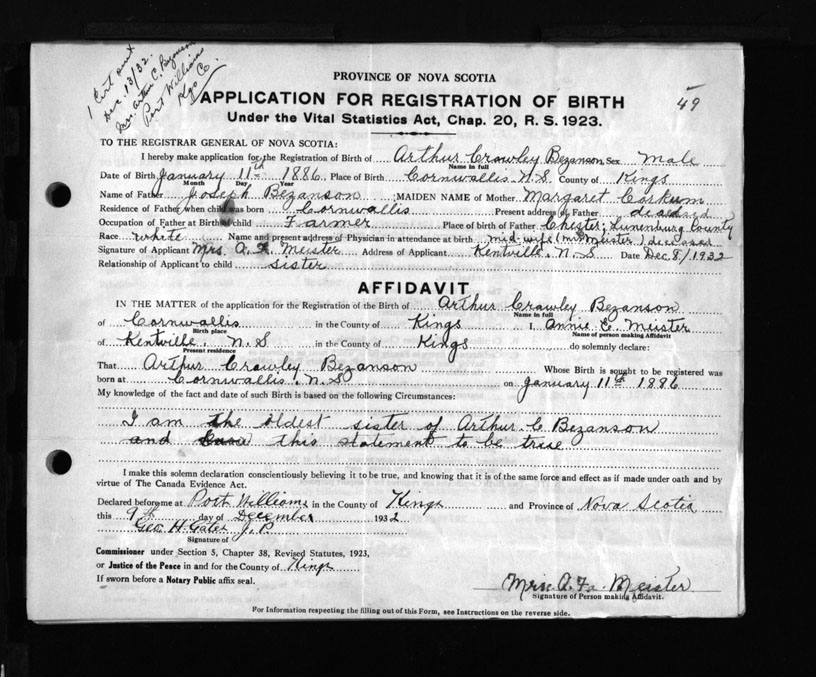 1 Cert sent
Dec. 13/32.
Mr. Arthur C. Bezanson
Port Williams
Kgs Co.
49
PROVINCE OF NOVA SCOTIA
APPLICATION FOR REGISTRATION OF BIRTH
Under the Vital Statistics Act, Chap. 20, R. S. 1923.
TO THE REGISTRAR GENERAL OF NOVA SCOTIA:
I hereby make application for the Registration of Birth of Arthur Crawley Bezanson Sex Male
Name in full
Date of Birth January 11th 1886 Place of Birth Cornwallis N.S County of Kings
Month Day Year
Name of Father Joseph Bezanson MAIDEN NAME of Mother Margaret Corkum
Residence of Father when child was born Cornwallis Present address of Father
Occupation of Father at Birth of child Farmer Place of birth of Father Chester, Lunenburg County
Race white Name and present address of Physician in attendance at birth mid-wife (Mrs Meister) deceased
Signature of Applicant Mrs. A. F. Meister Address of Applicant Kentville, N.S Date Dec 8/1932
Relationship of Applicant to child sister
AFFIDAVIT
IN THE MATTER of the application for the Registration of the Birth of Arthur Crawley Bezanson
Name in full
of Cornwallis in the County of Kings I, Annie E. Meister
Birth place Name of person making Affidavit
of Kentville, N.S in the County of Kings do solemnly declare:
Present residence
That Arthur Crawley Bezanson Whose Birth is sought to be registered was
born at Cornwallis, N.S on January 11th 1886
My knowledge of the fact and date of such Birth is based on the following Circumstances:
I am the oldest sister of Arthur C Bezanson
and this statement to be true
I make this solemn declaration conscientiously believing it to be true, and knowing that it is of the same force and effect as if made under oath and by
virtue of The Canada Evidence Act.
Declared before me at Port Williams in the County of Kings and Province of Nova Scotia
this 9th day of December 1932
Geo. H. Gates J.P.
Signature of
Commissioner under Section 5, Chapter 38, Revised Statutes, 1923,
or Justice of the Peace in and for the County of Kings
If sworn before a Notary Public affix seal.
Mrs. A. F. Meister
Signature of Person making Affidavit.
For Information respecting the filling out of this Form, see Instructions on the reverse side.